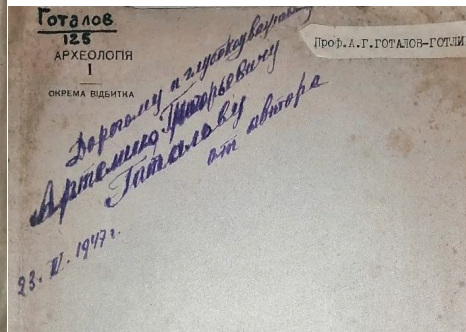 Готалов
125
АРХЕОЛОГІЯ
I
ОКРЕМА ВІДБИТКА
Проф.А.Г.ГОТАЛОВ-ГОТЛИ
Дорогому и глубокоуважаемому
Артемию Григорьевичу
Готалову
от автора
23. IV. 1947 г.